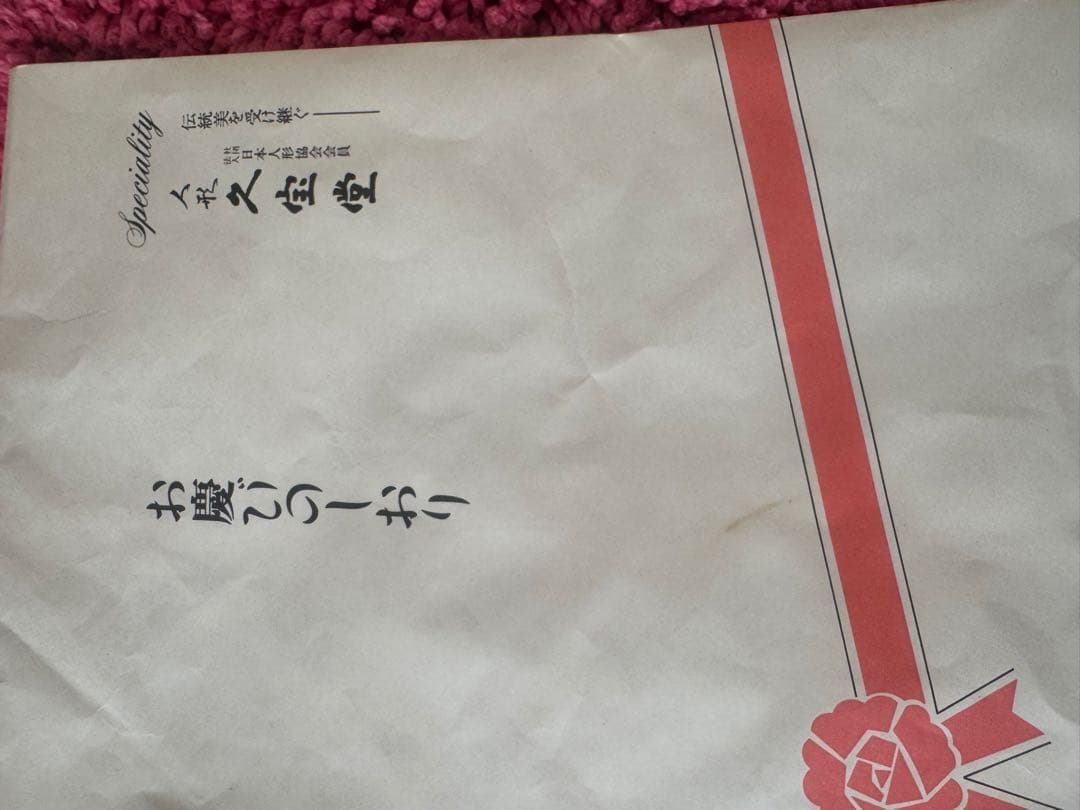 お慶びのしおり
Speciality
伝統美を受け継ぐ——
社団法人 日本人形協会会員
人形 久宝堂